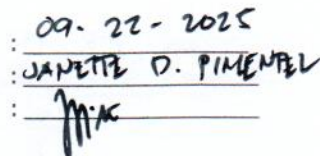 : 09-22-2025
: JANETTE D. PIMENTEL
: